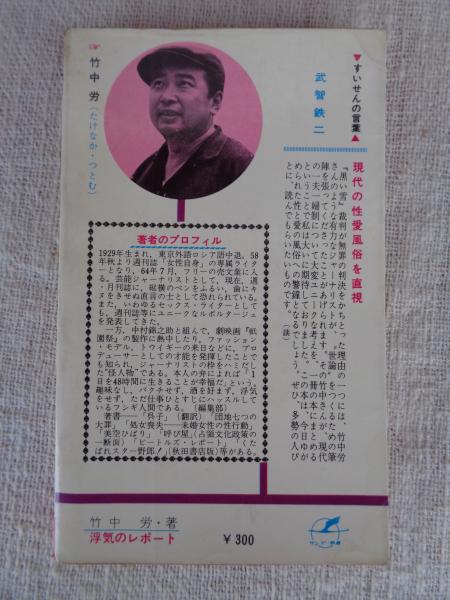 ▼すいせんの言葉▲
武智鉄二
現代の性愛風俗を直視
『黒い雪』裁判が無罪の判決をかちとった理由の一つには、竹中労
さんのような有力なジャーナリストが、〝世論〟をつくるための筆
陣を張ってくださったことがあげられます。その竹中さんが、現代
の一夫一婦制について大変ユニークな考えを、一冊の本にまとめる
ということで私は大いに期待しておりました。この本は、今日ゆが
められた性と愛の風俗への警鐘となるでしょう。ぜひ、多勢の人び
とに、読んでもらいたいものです。(談)
竹中 労(たけなか・つとむ)
著者のプロフィル
1929年生まれ、東京外語ロシア語中退。58
年秋より週刊誌「女性自身」の専属ライタ
ーとなり、64年7月、フリーの売文業に入
る。芸能ジャーナリストとして、現在、週
・月刊誌に、縦横のペンをふるい、歯にキ
ヌをきせぬ直言の士として恐れられている。
また、いわゆるセックス・ライターとして
も、週刊誌等にユニークなルポルタージュ
を発表してきた。
一方、中村錦之助と組んで、劇映画『祇
園祭』の製作に熱中したり、ファッション
・モデル、トゥイギーの来日などに、プロ
デューサーとしての才能を発揮したことで
も知られ、ジャーナリストの枠をハミだし
た〝怪人物〟である。本人の弁によれば「1
日を48時間に生きることが幸福だ」という。
趣味なし、バクチせず、酒を好まず、浮気
をせず、ただ仕事ひとすじにハッスルして
いるフシギ人間である。(編集部)
著書――「呉子」(翻訳)「団地七つの
大罪」「処女喪失――未婚女性の性行動」
「美空ひばり」「呼び屋」(占領文化政策の
一断面)「ビートルズ・レポート」「くた
ばれスター野郎!」(秋田書店版)等がある。
竹中 労・著
浮気のレポート
¥300